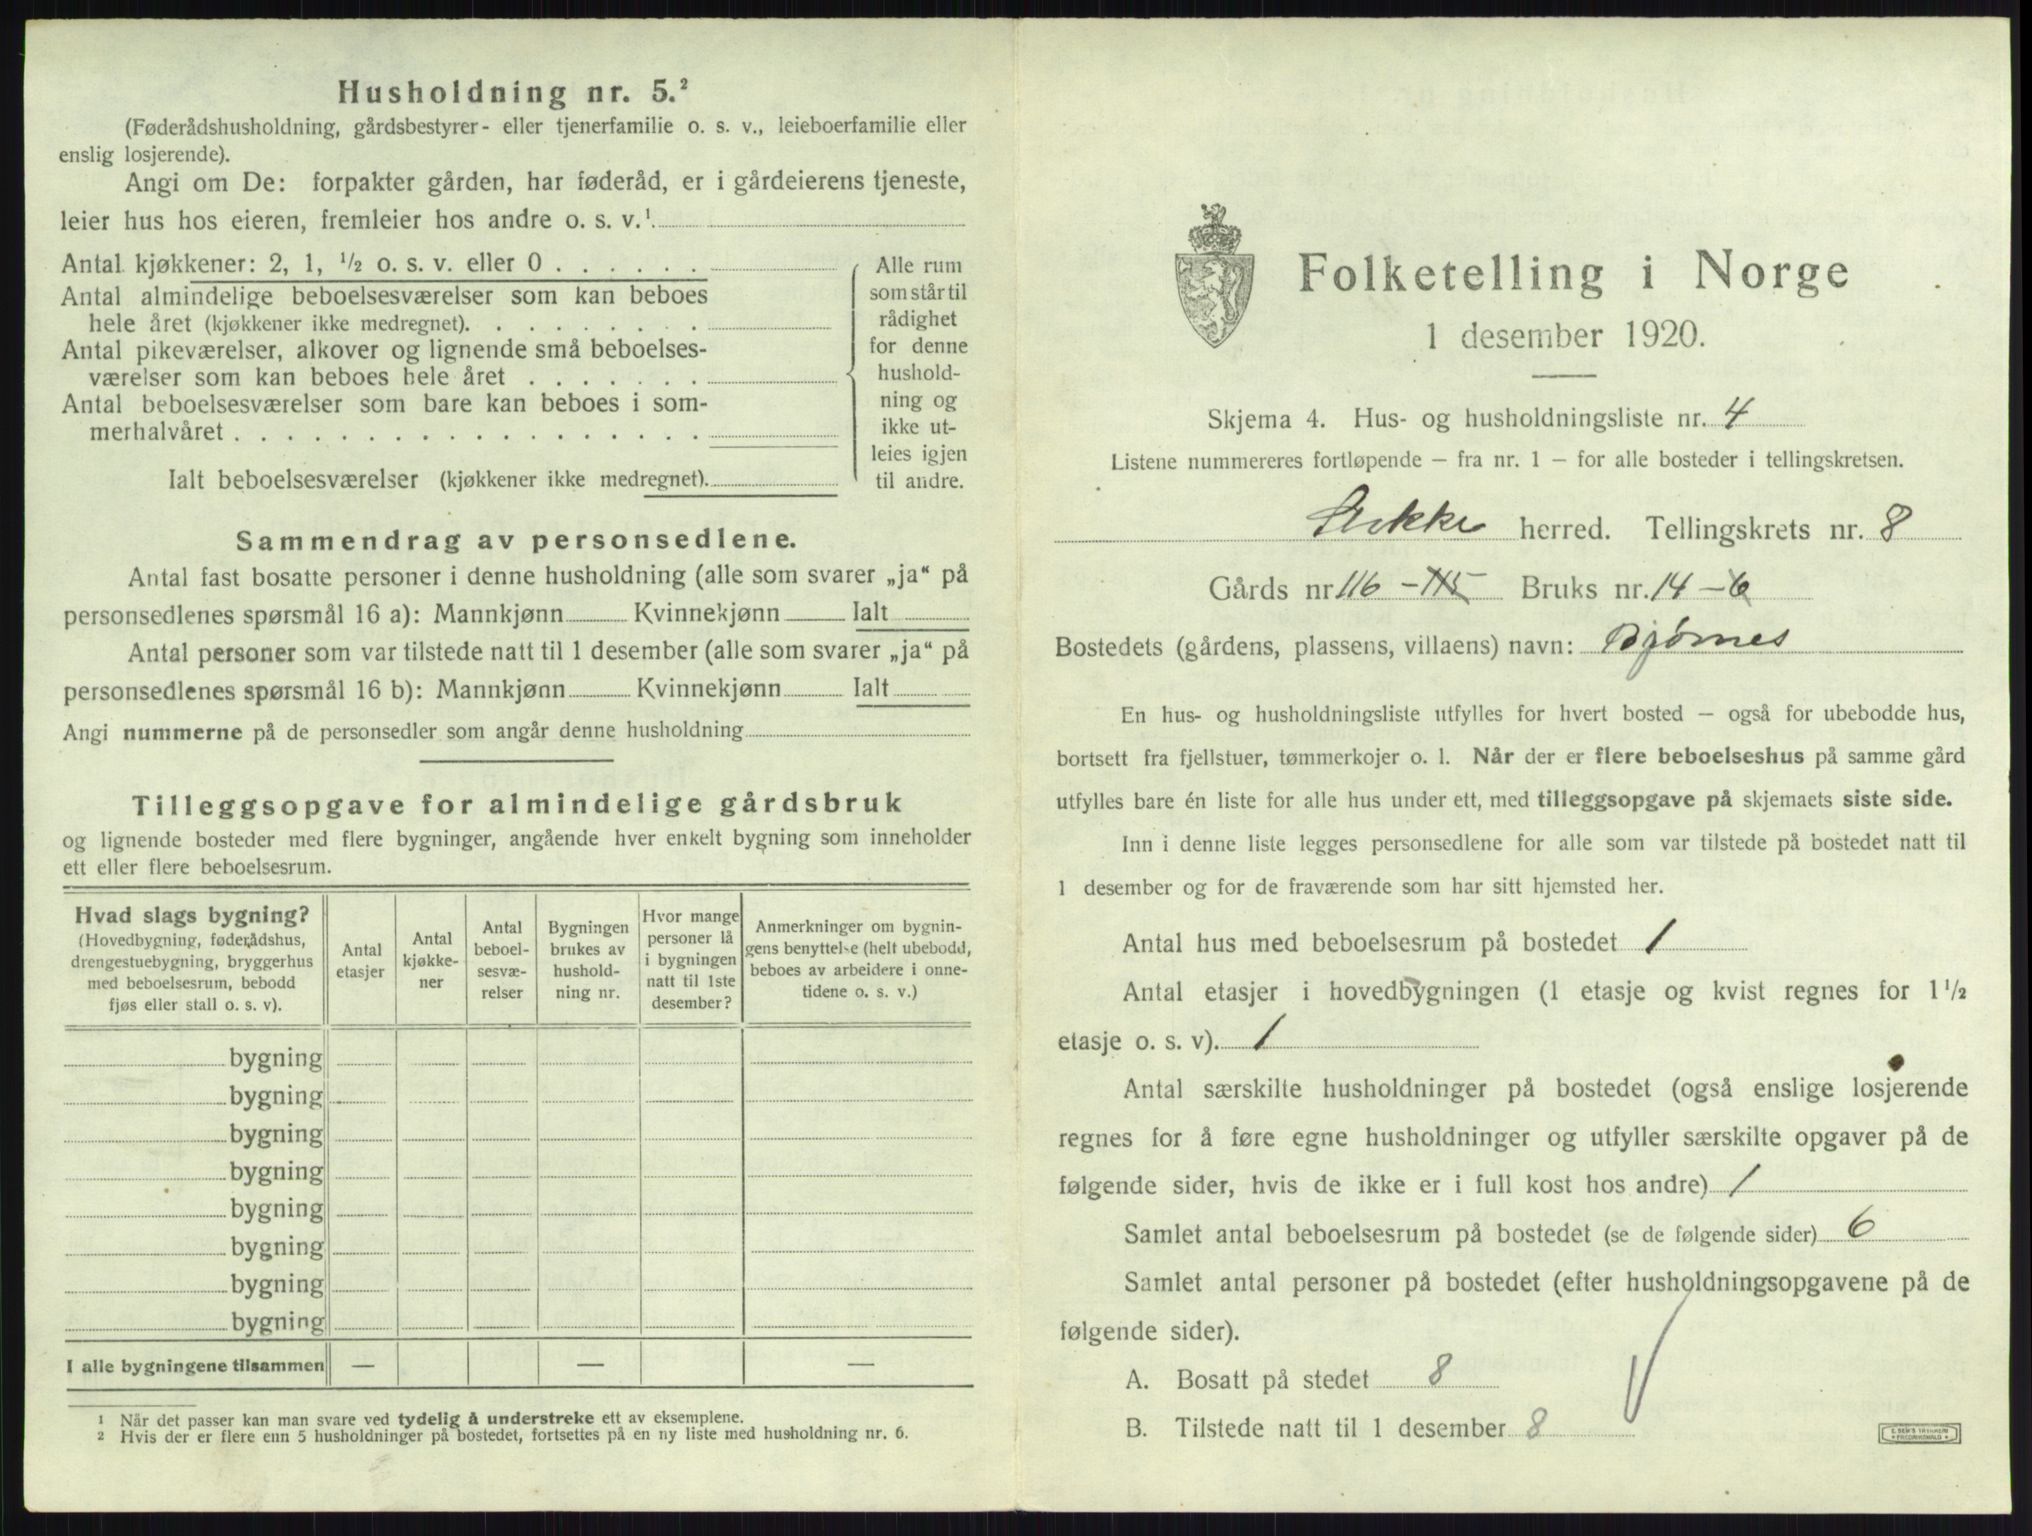 Husholdning nr. 5.²
(Føderådshusholdning, gårdsbestyrer- eller tjenerfamilie o. s. v., leieboerfamilie eller
enslig losjerende).
Angi om De: forpakter gården, har føderåd, er i gårdeierens tjeneste,
leier hus hos eieren, fremleier hos andre o. s. v.¹
Antal kjøkkener: 2, 1, ½ o. s. v. eller 0 . . . . . .
Antal almindelige beboelsesværelser som kan beboes
hele året (kjøkkener ikke medregnet). . . . . . . . .
Antal pikeværelser, alkover og lignende små beboelses-
værelser som kan beboes hele året . . . . . . .
Antal beboelsesværelser som bare kan beboes i som-
merhalvåret . . . . . . . . . . . . . . . . . .
Ialt beboelsesværelser (kjøkkener ikke medregnet).
Alle rum
som står til
rådighet
for denne
hushold-
ning og
ikke ut-
leies igjen
til andre.
Sammendrag av personsedlene.
Antal fast bosatte personer i denne husholdning (alle som svarer „ja“ på
personsedlenes spørsmål 16 a): Mannkjønn Kvinnekjønn Ialt
Antal personer som var tilstede natt til 1 desember (alle som svarer „ja“ på
personsedlenes spørsmål 16 b): Mannkjønn Kvinnekjønn Ialt
Angi nummerne på de personsedler som angår denne husholdning
Tilleggsopgave for almindelige gårdsbruk
og lignende bosteder med flere bygninger, angående hver enkelt bygning som inneholder
ett eller flere beboelsesrum.
Hvad slags bygning?
(Hovedbygning, føderådshus,
drengestuebygning, bryggerhus
med beboelsesrum, bebodd
fjøs eller stall o. s. v).
Antal
etasjer
Antal
kjøkke-
ner
Antal
beboel-
sesvæ-
relser
Bygningen
brukes av
hushold-
ning nr.
Hvor mange
personer lå
i bygningen
natt til 1ste
desember?
Anmerkninger om bygnin-
gens benyttelse (helt ubebodd,
beboes av arbeidere i onne-
tidene o. s. v.)
bygning
bygning
bygning
bygning
bygning
bygning
bygning
bygning
I alle bygningene tilsammen — — —
¹ Når det passer kan man svare ved tydelig å understreke ett av eksemplene.
² Hvis der er flere enn 5 husholdninger på bostedet, fortsettes på en ny liste med husholdning nr. 6.
Folketelling i Norge
1 desember 1920.
Skjema 4. Hus- og husholdningsliste nr. 4
Listene nummereres fortløpende – fra nr. 1 – for alle bosteder i tellingskretsen.
Stokke herred. Tellingskrets nr. 8
Gårds nr 116 - 115 Bruks nr. 14 - 6
Bostedets (gårdens, plassens, villaens) navn: Bjørnes
En hus- og husholdningsliste utfylles for hvert bosted – også for ubebodde hus,
bortsett fra fjellstuer, tømmerkojer o. l. Når der er flere beboelseshus på samme gård
utfylles bare én liste for alle hus under ett, med tilleggsopgave på skjemaets siste side.
Inn i denne liste legges personsedlene for alle som var tilstede på bostedet natt til
1 desember og for de fraværende som har sitt hjemsted her.
Antal hus med beboelsesrum på bostedet 1
Antal etasjer i hovedbygningen (1 etasje og kvist regnes for 1½
etasje o. s. v). 1
Antal særskilte husholdninger på bostedet (også enslige losjerende
regnes for å føre egne husholdninger og utfyller særskilte opgaver på de
følgende sider, hvis de ikke er i full kost hos andre) 1
Samlet antal beboelsesrum på bostedet (se de følgende sider) 6
Samlet antal personer på bostedet (efter husholdningsopgavene på de
følgende sider).
A. Bosatt på stedet 8
B. Tilstede natt til 1 desember 8